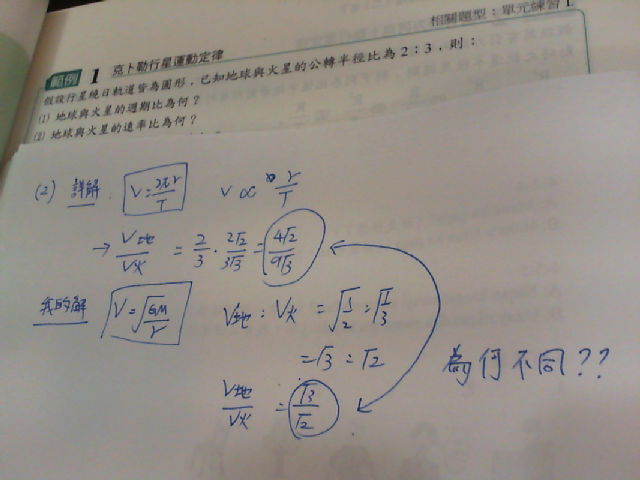 相關題型：單元練習1
範例 1 克卜勒行星運動定律
假設行星繞日軌道皆為圓形，已知地球與火星的公轉半徑比為2：3，則：
(1) 地球與火星的週期比為何？
(2) 地球與火星的速率比為何？
(2) 詳解 V=2πr/T V ∝ r/T
→ V地/V火 = 2/3 · 2√2/3√3 = 4√2/9√3
我的解 V=√GM/r V地：V火 = √1/2：√1/3
= √3：√2
V地/V火 = √3/√2
為何不同??